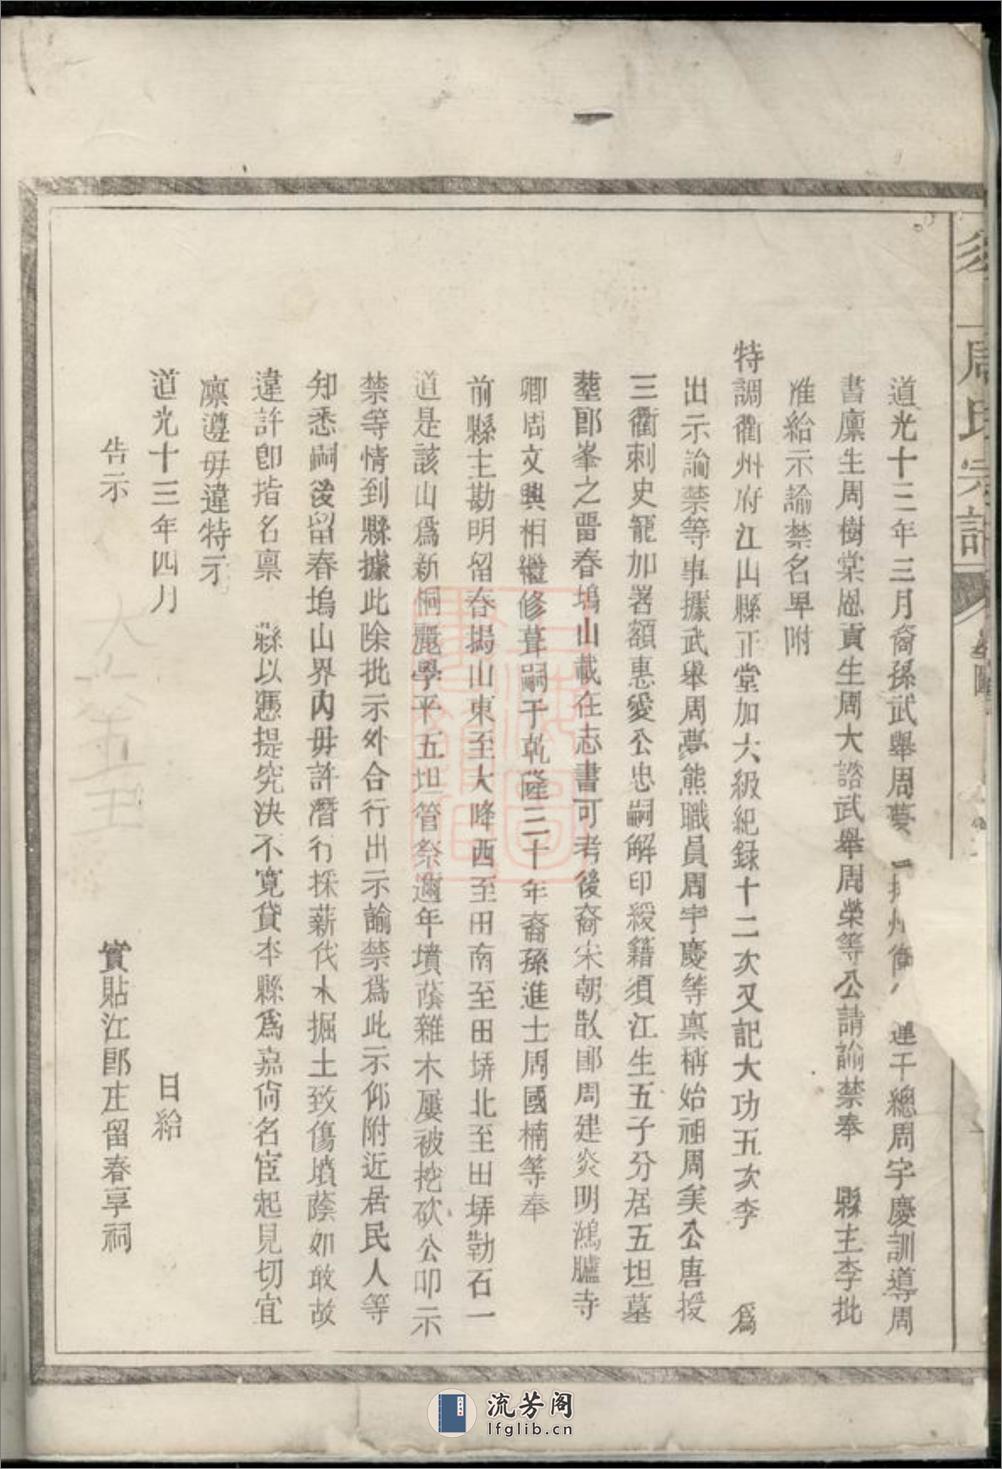 周氏宗譜
道光十三年三月裔孫武舉周夢 千總周宇慶訓導周
書廩生周樹棠恩貢生周大諮武舉周榮等公請諭禁奉 縣主李批
准給示諭禁名單附
特調衢州府江山縣正堂加六級紀錄十二次又記大功五次李 爲
出示諭禁等事據武舉周夢熊職員周宇慶等稟稱始祖周美公唐授
三衢刺史寵加署額惠愛公忠嗣解印綬籍須江生五子分居五坦墓
塟郎峯之畱春塢山載在志書可考後裔宋朝散郎周建炎明鴻臚寺
卿周文興相繼修葺嗣于乾隆三十年裔孫進士周國楠等奉
前縣主勘明留春塢山東至大降西至田南至田塝北至田塝勒石一
道是該山爲新恫麗學平五坦管祭邇年墳蔭雜木屢被挖砍公叩示
禁等情到縣據此除批示外合行出示諭禁爲此示仰附近居民人等
知悉嗣後留春塢山界內毋許潛行採薪伐木掘土致傷墳蔭如敢故
違許卽指名禀 縣以憑提究決不寬貸本縣爲嘉尙名宦起見切宜
凛遵毋違特示
道光十三年四月 日給
告示 實貼江郎庄留春享祠
流芳阁
lfglib.cn